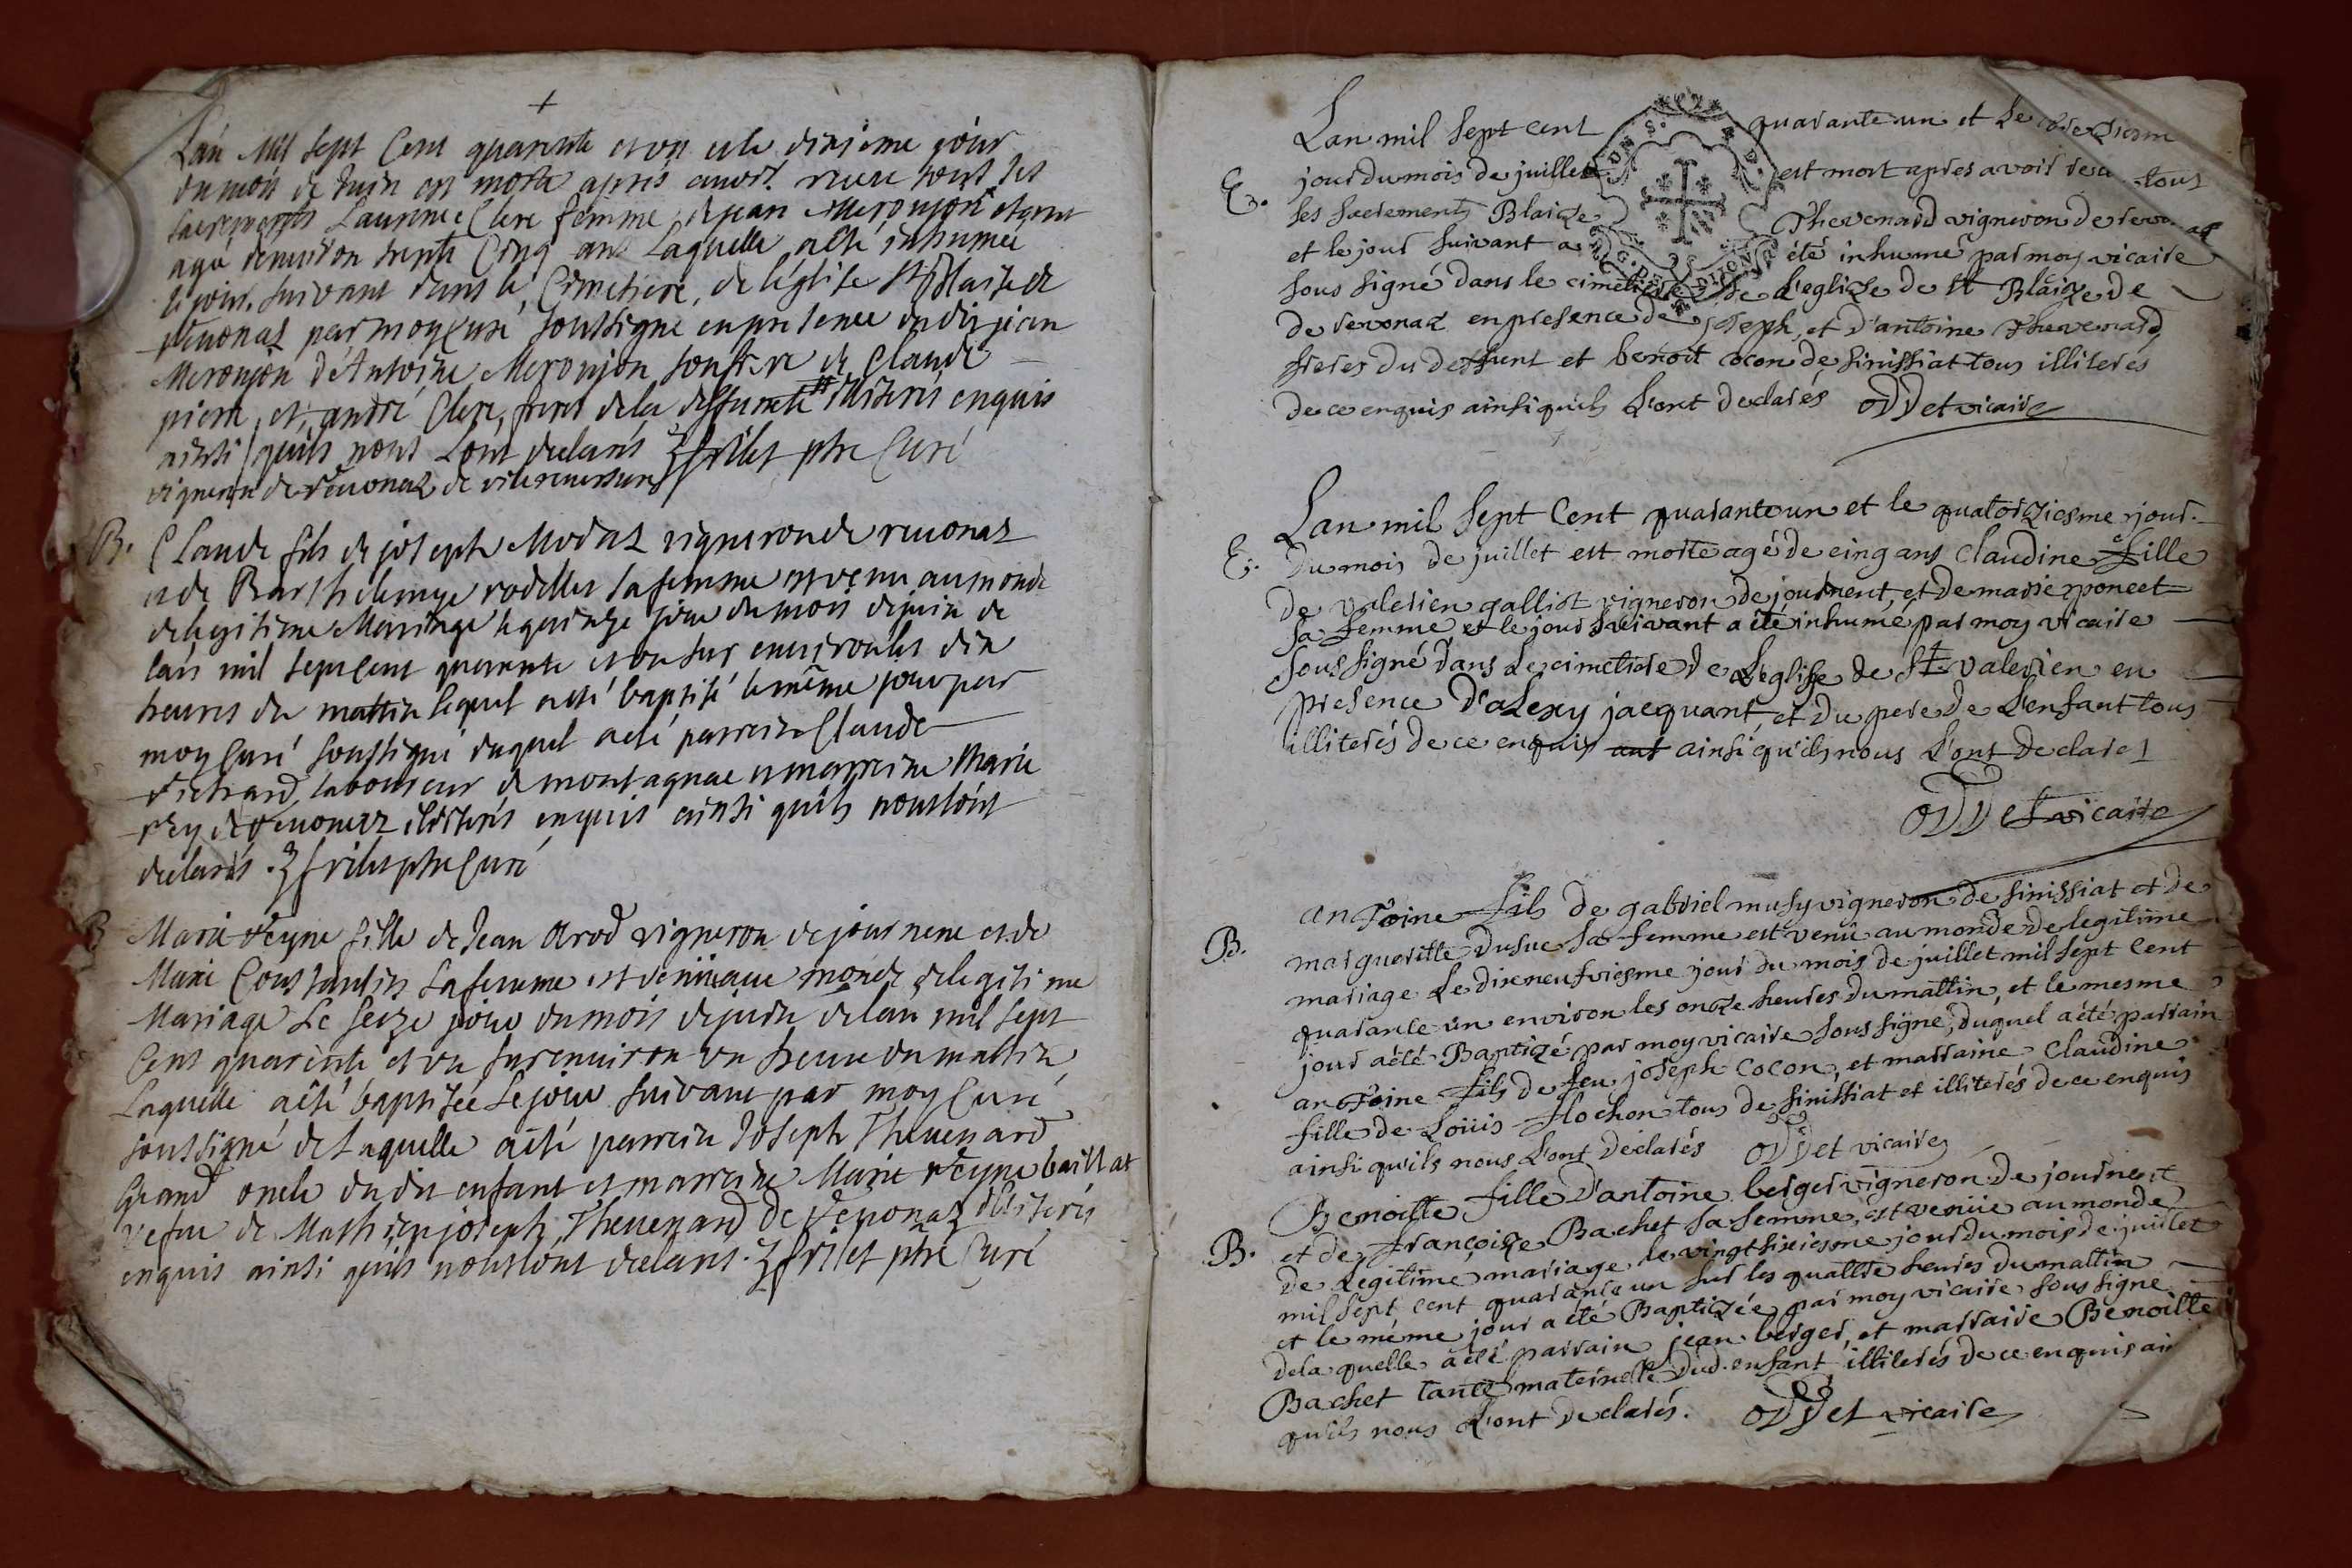 +
Lan Mil sept Cent quarente et un et le dixieme jour
du mois de Juin est morte apres avoir receu tous les
sacrements Laurence Clerc femme de jean Meronjon etant
agé denviron trente Cinq ans Laquelle a été inhumée
le jour suivant dans le Cimetiere de léglise St Blaise de
revonaz par moy Curé soussigné en presence du dit jean
Meronjon d'Antoine Meronjon son frere de Claude
pierre et andré Clerc freres de la deffunte # illiterés enquis
ainsi quils nous Lont declarés frilet ptre Curé
vigneron de revonaz de villereversure
B. Claude fils de joseph Modas vigneron de revonaz
et de Barthelemye rodillet sa femme est venu au monde
de legitime Mariage le quinze jour du mois de juin de
lan mil sept cent quarente et un sur environ les dix
heures du mattin lequel a été baptisé le même jour par
moy Curé soussigné duquel a été parrein Claude
richard laboureur de montagnac et marreine Marie
rey de revonaz illiterés enquis ainsi quils nous lont
declarés . frilet ptre Curé
B Marie reyne fille de Jean Arod vigneron de journent et de
Marie Constantin sa femme est venüe au monde de legitime
Mariage Le seize jour du mois de juin de lan mil sept
Cent quarente et un sur environ un heure du mattin
Laquelle a été baptisée Le jour suivant par moy Curé
soussigné de Laquelle a été parrein Joseph Thevenard
Grand oncle du dit enfant et marreine Marie reyne baillat
vefve de Mathieu joseph Thevenard de revonaz illiterés
enquis ainsi quils nous lont declarés . frilet ptre Curé
Lan mil sept cent quarante un et le
E. jour du mois de juillet est mort apres avoir receu tous
les sacrements Blaize Thevenard vigneron de revonaz
et le jour suivant a été inhumé par moy vicaire
sous signé dans le cimetiere de l'eglize de St Blaize de
de revonaz en presence de joseph, et d'antoine thevenard,
freres du deffunt et benoit cocon de sinissiat tous illiterés
de ce enquis ainsi quils L'ont declarés oddet vicaire
Lan mil sept Cent quarante un et le quatorziesme jour
E. du mois de juillet est morte agé de cinq ans claudine fille
de valerien galliot vigneron de journent, et de marie poncet
sa femme, et le jour suivant a été inhumé par moy vicaire
sous signé dans le cimetiere de L'eglise de St valerien en
presence d'alexy jacquant, et du pere de L'enfant tous
illiterés de ce enquis ant ainsi qu'ils nous L'ont declarés
oddet vicaire
antoine fils de gabriel musy vigneron de sinissiat et de
B. marguerite dusuc sa femme est venû au monde de legitime
mariage le dixneufviesme jour du mois de juillet mil sept cent
quarante un environ les onze heures du mattin, et le mesme
jour a été Baptizé par moy vicaire sous signé, duquel a été parrain
antoine fils de feu joseph cocon, et marraine claudine
fille de Loüis flochon tous de sinissiat et illiterés de ce enquis
ainsi qu'ils nous L'ont declarés oddet vicaire
Benoitte fille d'antoine berger vigneron de journent
B. et de françoize Bachet sa femme, est venüe au monde
de legitime mariage le vingt sixiesme jour du mois de juillet
mil sept cent quarante un sur les quattre heures du mattin
et le même jour a été Baptizée par moy vicaire sous signé
de la quelle a été parrain jean berger, et marraire Benoitte
Bachet tante maternelle dud. enfant illiterés de ce enquis ain
qu'ils nous L'ont declarés. oddet vicaire